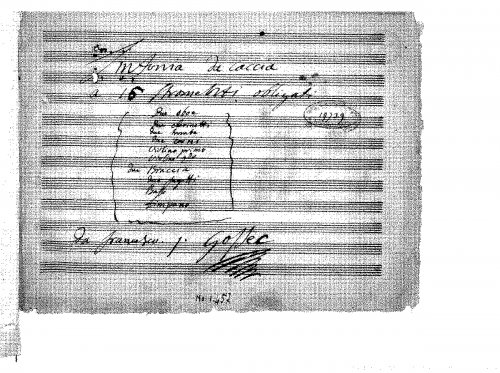 Sinfonia da caccia
a 16 stromenti obligati
due oboe
due clarinetti
due trombe
due corni
Violino primo
Violino 2do
due Braccia
due fagotti
Basso
Timpano
da francesco j. Gossec